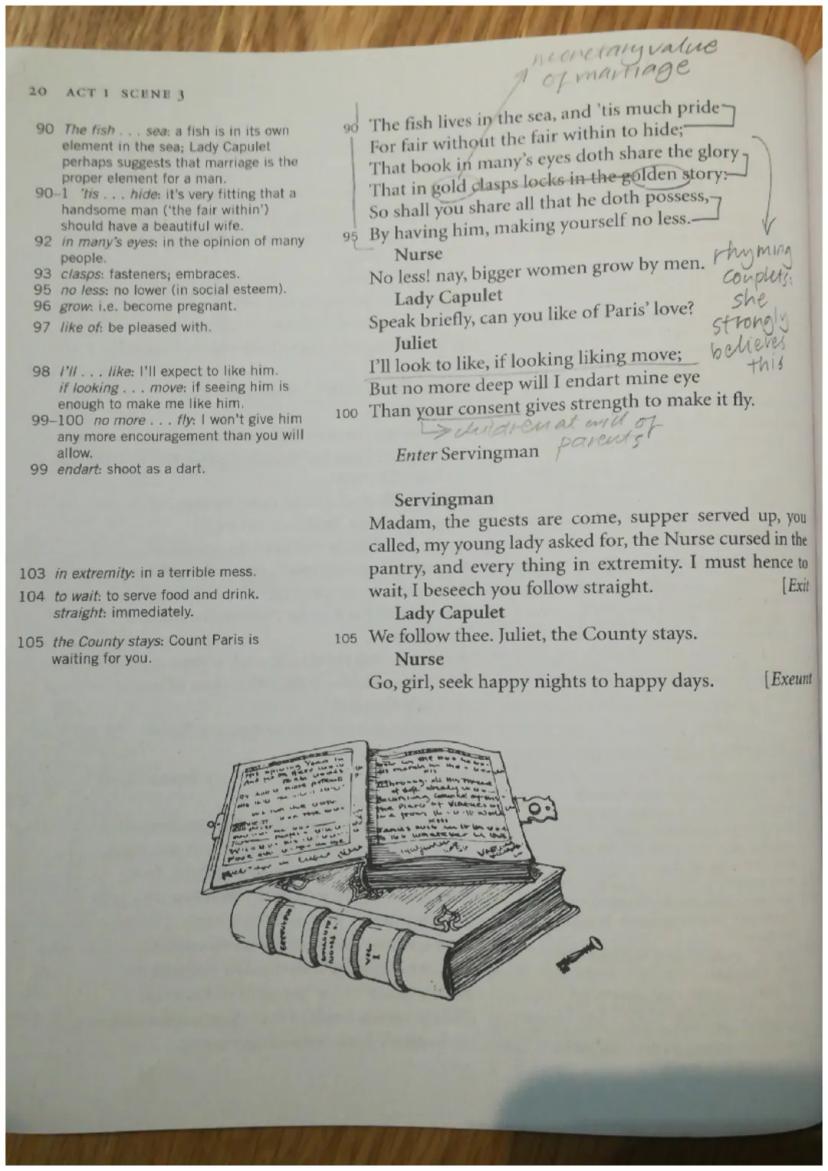 20 ACT 1 SCENE 3
90 The fish . . . sea: a fish is in its own
element in the sea; Lady Capulet
perhaps suggests that marriage is the
proper element for a man.
90–1 'tis . . . hide: it's very fitting that a
handsome man ('the fair within')
should have a beautiful wife.
92 in many's eyes: in the opinion of many
people.
93 clasps: fasteners; embraces.
95 no less: no lower (in social esteem).
96 grow: i.e. become pregnant.
97 like of: be pleased with.
98 I'll . . . like: I'll expect to like him.
if looking . . . move: if seeing him is
enough to make me like him.
99–100 no more . . . fly: I won't give him
any more encouragement than you will
allow.
99 endart: shoot as a dart.
103 in extremity: in a terrible mess.
104 to wait: to serve food and drink.
straight: immediately.
105 the County stays: Count Paris is
waiting for you.
monetary value
of marriage
90 The fish lives in the sea, and 'tis much pride
For fair without the fair within to hide;
That book in many's eyes doth share the glory
That in gold clasps locks in the golden story:
So shall you share all that he doth possess,
95 By having him, making yourself no less.
Nurse
No less! nay, bigger women grow by men.
Lady Capulet
Speak briefly, can you like of Paris' love?
Juliet
I'll look to like, if looking liking move;
But no more deep will I endart mine eye
100 Than your consent gives strength to make it fly.
rhyming
couplets:
she
strongly
believes
this
children at will of
parents
Enter Servingman
Servingman
Madam, the guests are come, supper served up, you
called, my young lady asked for, the Nurse cursed in the
pantry, and every thing in extremity. I must hence to
wait, I beseech you follow straight. [Exit
Lady Capulet
105 We follow thee. Juliet, the County stays.
Nurse
Go, girl, seek happy nights to happy days. [Exeunt